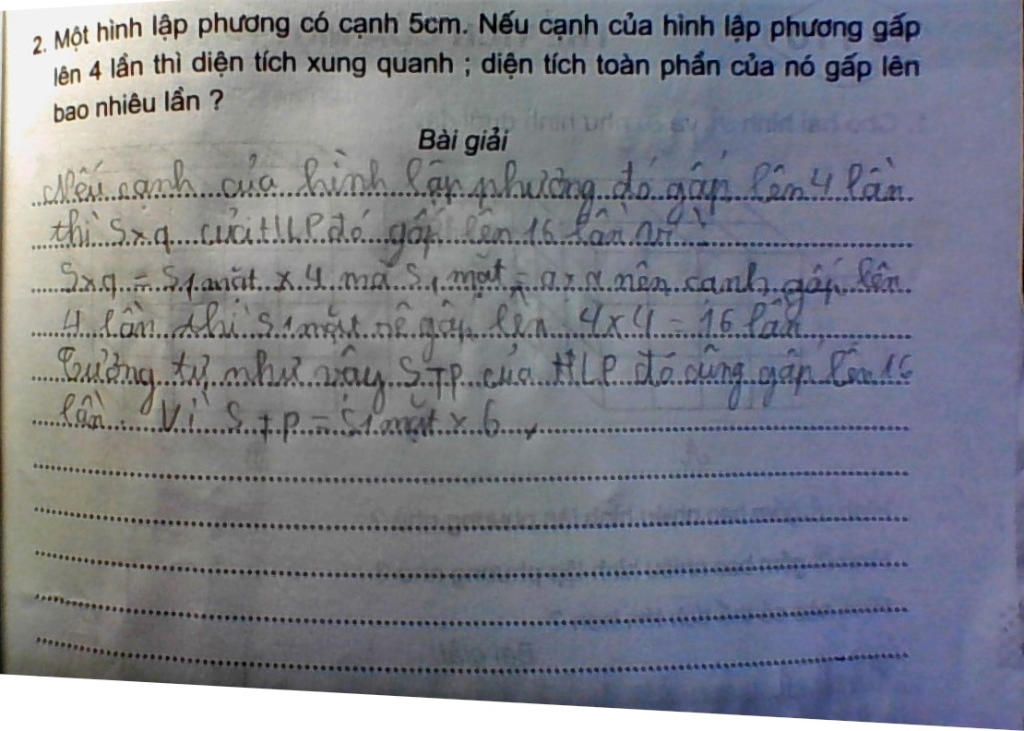 2. Một hình lập phương có cạnh 5cm. Nếu cạnh của hình lập phương gấp
lên 4 lần thì diện tích xung quanh ; diện tích toàn phần của nó gấp lên
bao nhiêu lần ?
Bài giải
Nếu cạnh của hình lập phương đó gấp lên 4 lần
thì Sxq của HLP đó gấp lên 16 lần vì
Sxq = S1 mặt x 4 mà S1 mặt = a x a nên cạnh gấp lên
4 lần thì S 1 mặt sẽ gấp lên 4 x 4 = 16 lần
Tương tự như vậy STP của HLP đó cũng gấp lên 16
lần. Vì STP = S1 mặt x 6